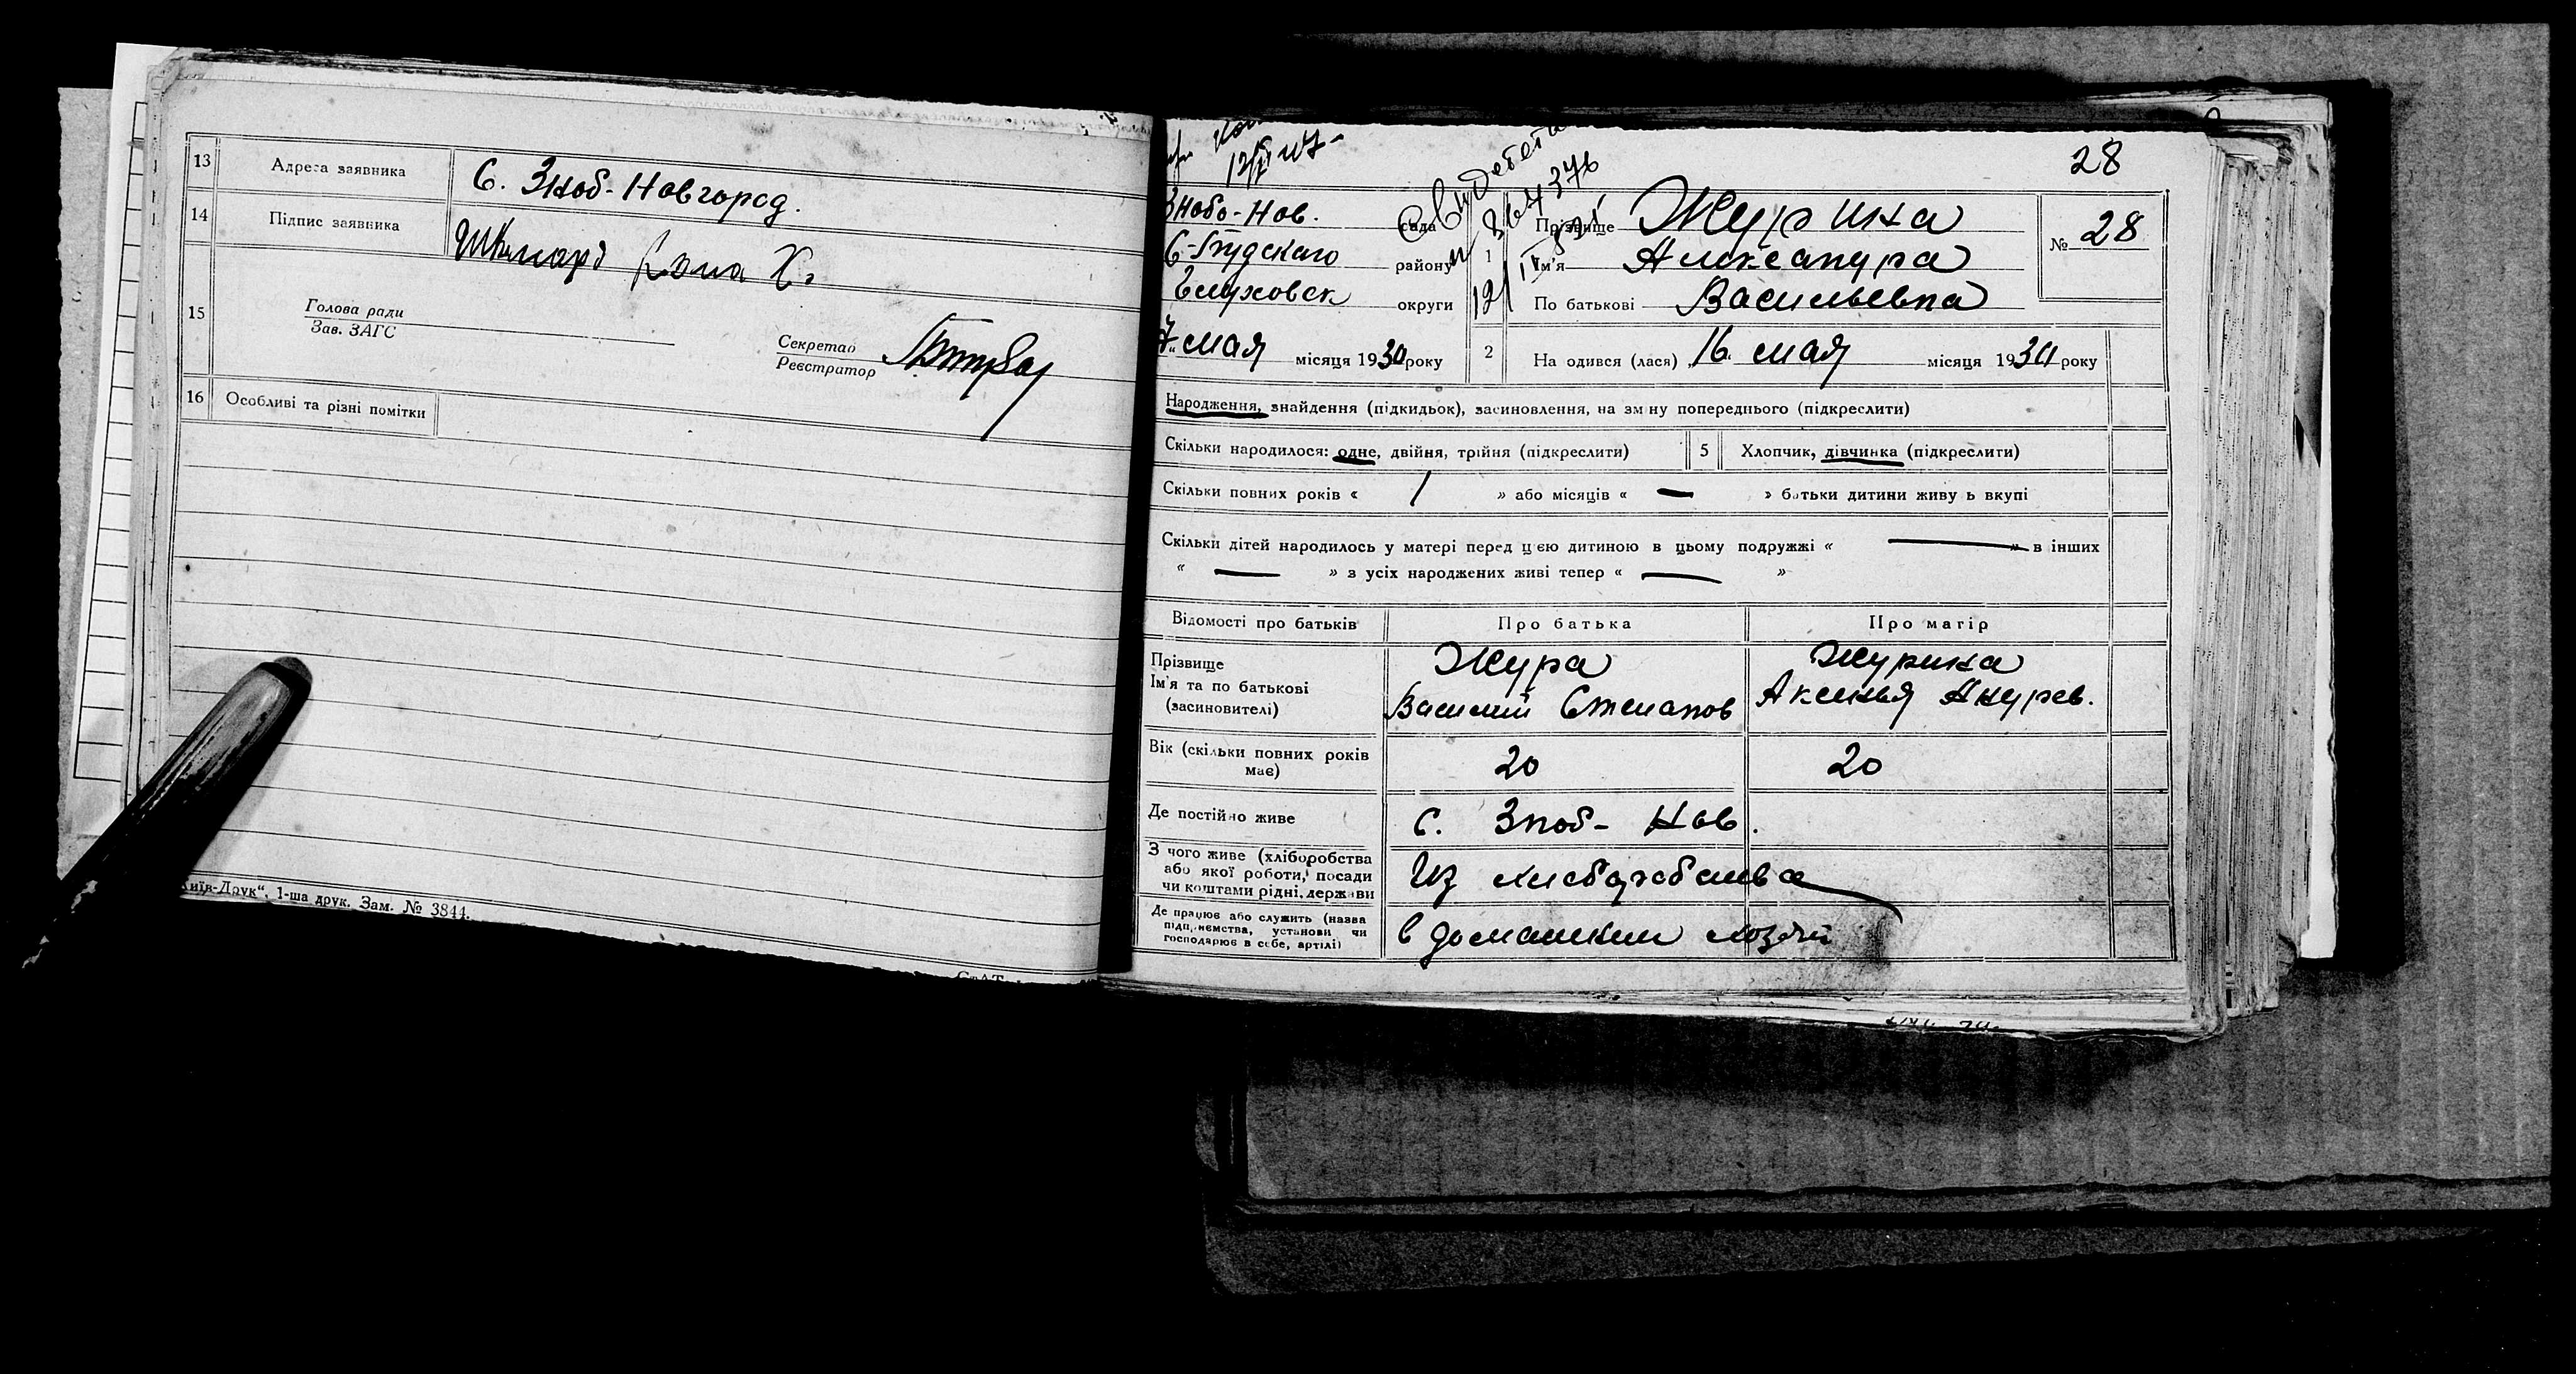 13 Адреса заявника С. Зноб-Новгород.
14 Підпис заявника
15 Голова ради
Зав. ЗАГС
Секретар
Реєстратор
16 Особливі та різні помітки
Київ-Друк“, 1-ша друк. Зам. № 3844.
28
364376
Знобо-Нов. Сада
С-Будскаго району
Глуховск округи
7 мая місяця 1930 року
1 Прізвище Журина
Ім'я Александра
По батькові Васильевна
№ 28
2 На одився (лася) „16. мая місяця 1930 року
Народження, знайдення (підкидьок), засиновлення, на зміну попереднього (підкреслити)
Скільки народилося: одне, двійня, трійня (підкреслити) 5 Хлопчик, дівчинка (підкреслити)
Скільки повних років « 1 » або місяців « — » батьки дитини живу ь вкупі
Скільки дітей народилось у матері перед цією дитиною в цьому подружжі « — » в інших
“ — » з усіх народжених живі тепер “ — »
Відомості про батьків Про батька Про матір
Прізвище Жура Журина
Ім'я та по батькові Василий Степанов Аксинья
(засиновителі)
Вік (скільки повних років має) 20 20
Де постійно живе с. Зноб- Нов.
З чого живе (хліборобства
або якої роботи, посади
чи коштами рідні, держави Из хлеборобства
Де працює або служить (назва
підприємства, установи чи
господарює в себе, артілі) в домашнем